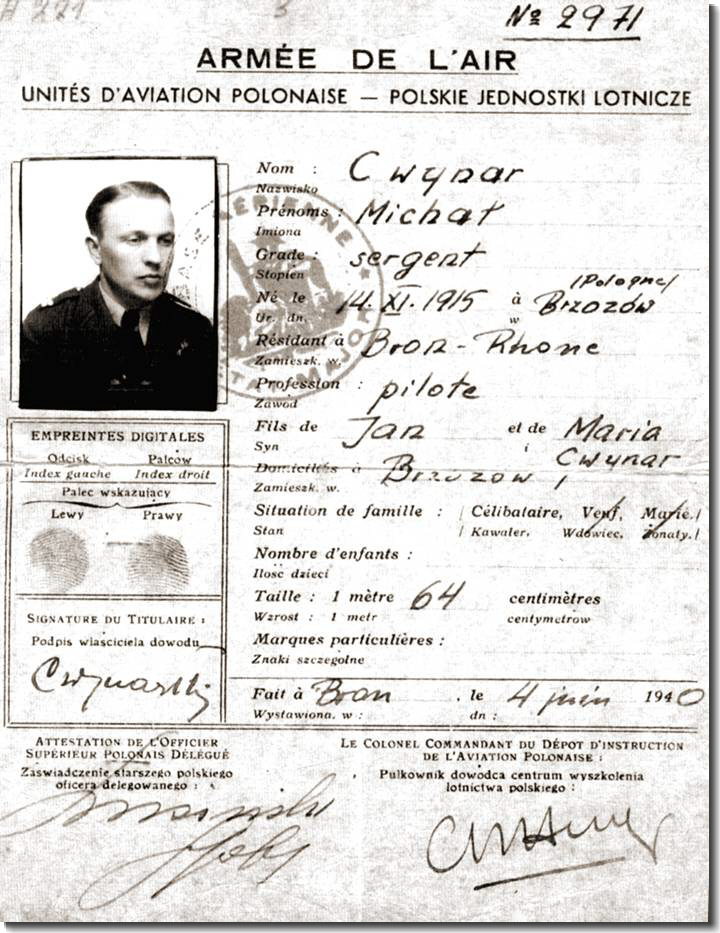 # 221
3
Nº 2971
ARMÉE DE L'AIR
UNITÉS D'AVIATION POLONAISE — POLSKIE JEDNOSTKI LOTNICZE
Nom : Cwynar
Nazwisko
Prénoms : Michał
Imiona
Grade : sergent
Stopień
/Pologne/
Né le 14. XI. 1915 à Brzozów
Ur. dn. w
Résidant à Bron - Rhone
Zamieszk. w.
Profession : pilote
Zawód
Fils de Jan et de Maria
Syn i Cwynar
Domiciliés à Brzozow /
Zamieszk. w.
Situation de famille : / Célibataire, Veuf, Marié. /
Stan / Kawaler, Wdowiec, żonaty. /
Nombre d'enfants :
Ilość dzieci
Taille : 1 mètre 64 centimètres
Wzrost : 1 metr centymetrow
Marques particulières :
Znaki szczegolne
Fait à Bron , le 4 juin 1940
Wystawiona, w : dn :
EMPREINTES DIGITALES
Odcisk Palców
Index gauche Index droit
Palec wskazujący
Lewy Prawy
SIGNATURE DU TITULAIRE :
Podpis wlaściciela dowodu
ATTESTATION DE L'OFFICIER
SUPÉRIEUR POLONAIS DÉLÉGUÉ
Zaświadczenie starszego polskiego
oficera delegowanego :
LE COLONEL COMMANDANT DU DÉPOT D'INSTRUCTION
DE L'AVIATION POLONAISE :
Pulkownik dowódca centrum wyszkolenia
lotnictwa polskiego :